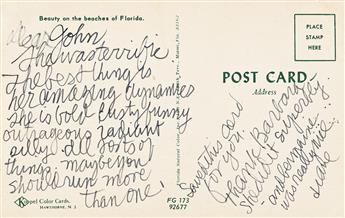 Beauty on the beaches of Florida.
Dear John,
She was terrific
The best thing is
her amazing dynamics
she is bold lusty funny
outrageous radiant
silly. All sorts of
things; maybe you
should run more
than one,
Koppel Color Cards.
HAWTHORNE, N. J.
FG 173
92677
PLACE
STAMP
HERE
POST CARD
Address
Saved this card
for you.
Thank Barbara
She did it sincerely.
and
was really nice.